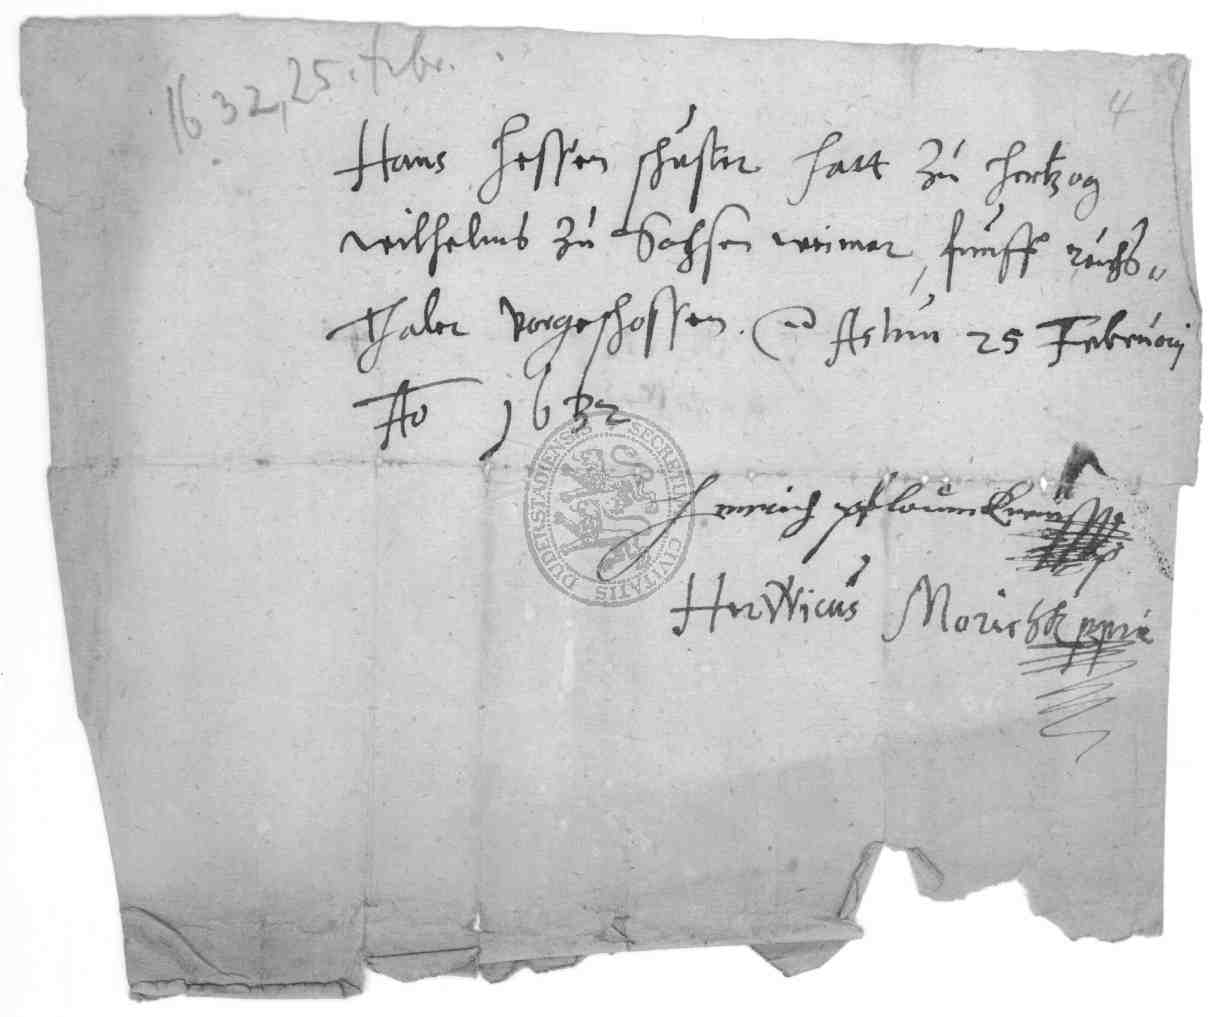 1632, 25. Febr.
4
Hans Hessen schuster hatt zu Hertzog
wilhelms zu Sachsen weimar, funff reichs„
thaler vorgeschossen. Actum 25 Februarij
Ao 1632
SECRETUM CIVITATIS DUDERSTADIENSIS
Henrich
Herwicus